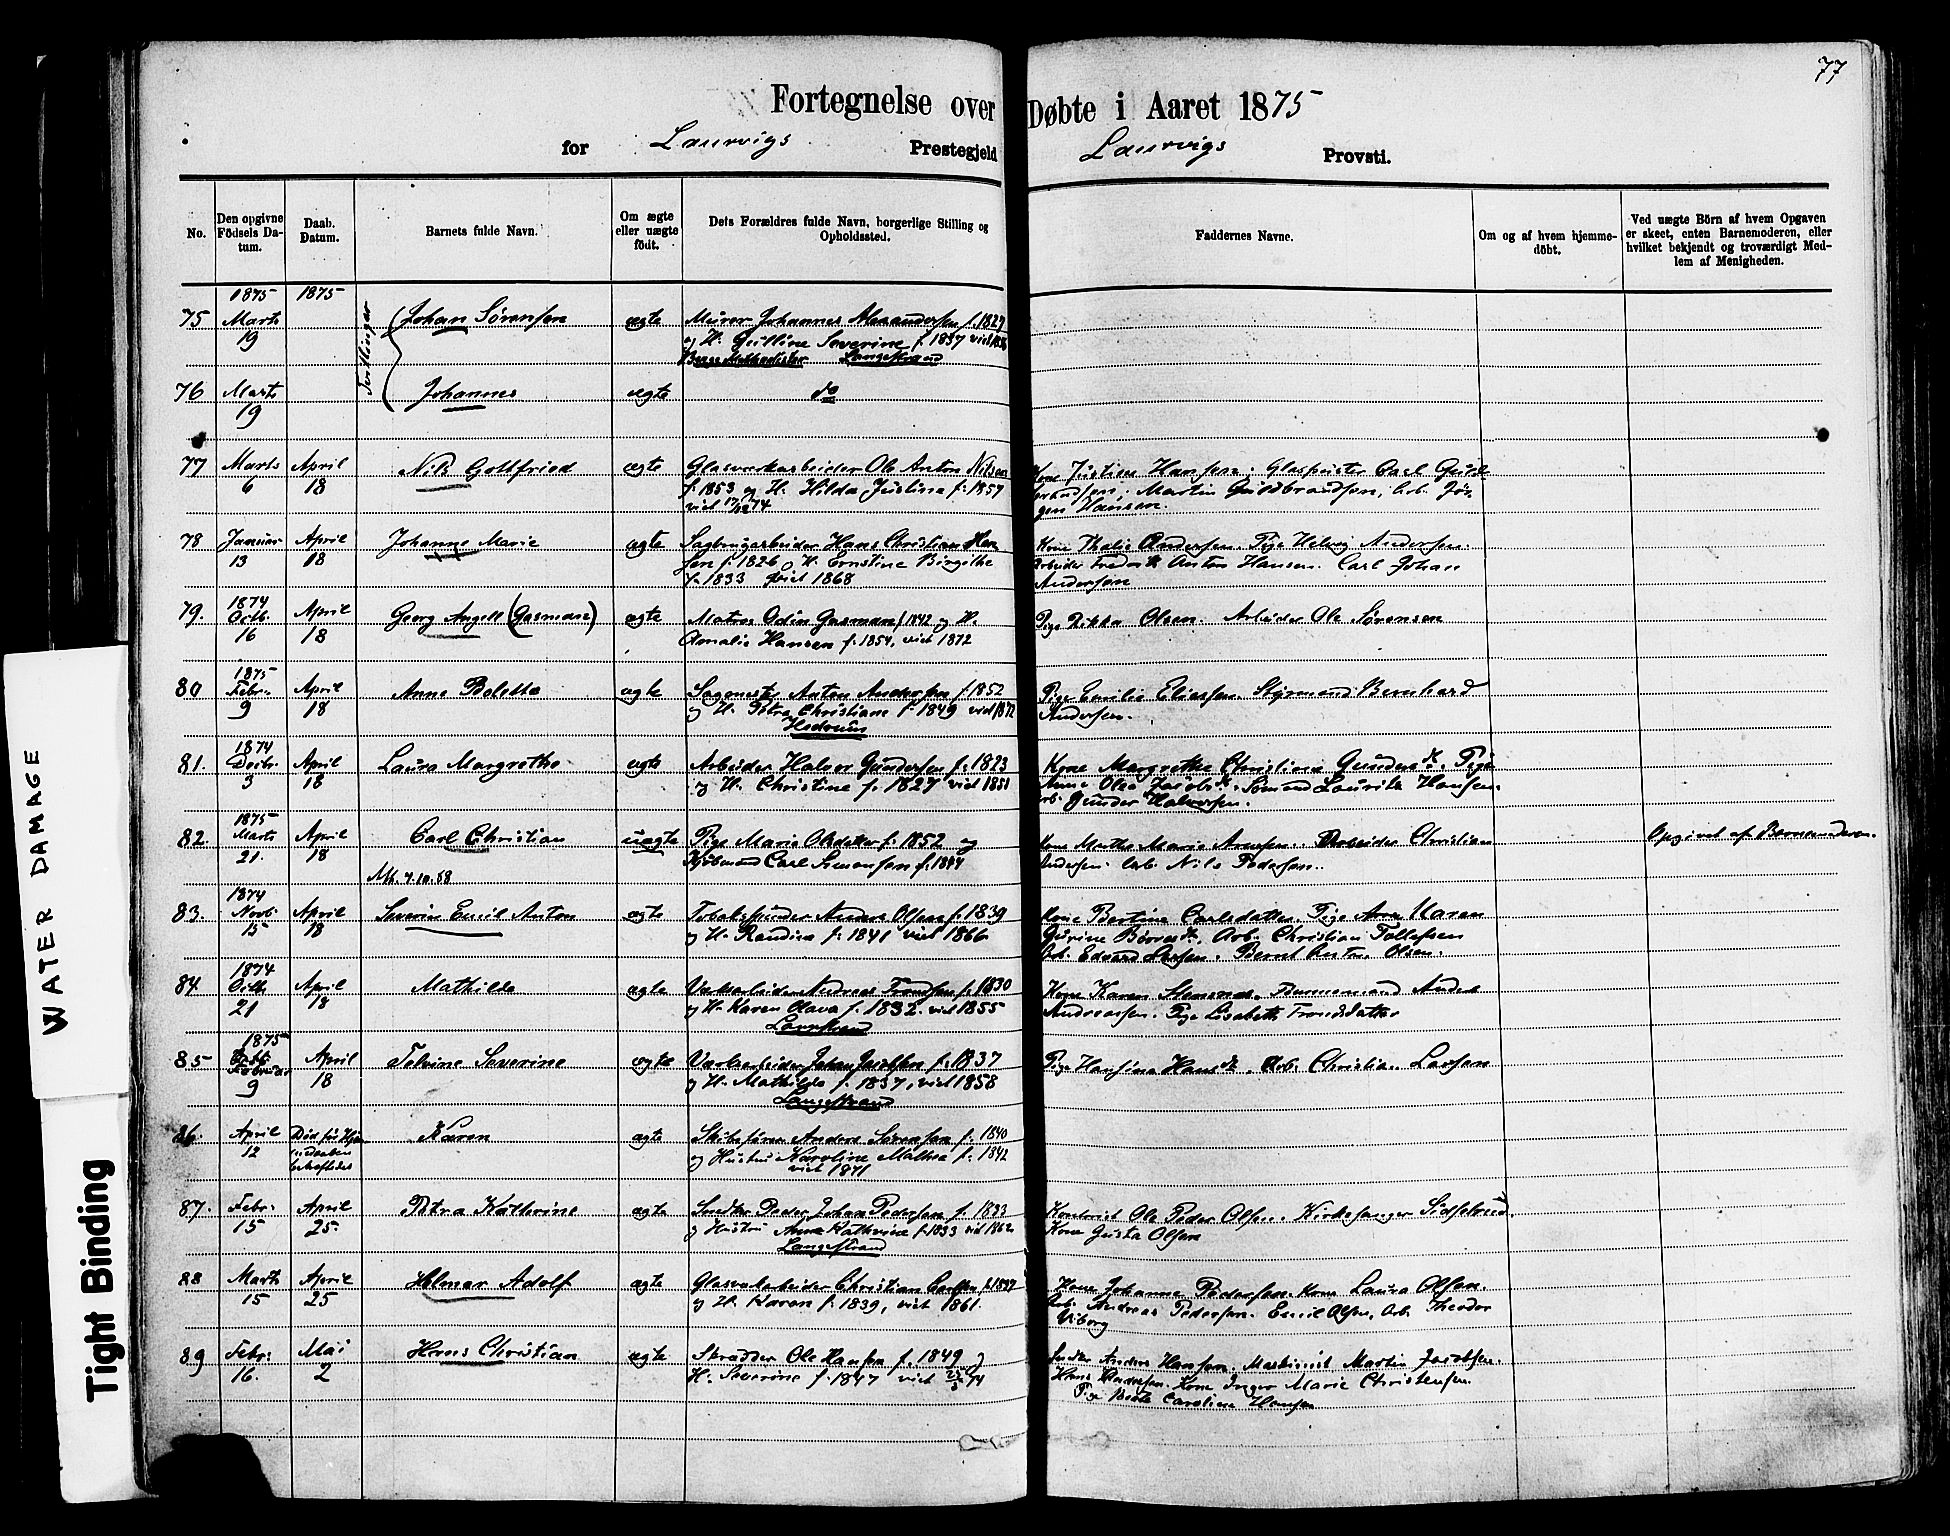 77
Fortegnelse over Døbte i Aaret 1875
for Laurvigs Prestegjeld Laurvigs Provsti.
No.
Den opgivne Födsels Datum.
Daab. Datum.
Barnets fulde Navn.
Om ægte eller uægte födt.
Dets Forældres fulde Navn, borgerlige Stilling og Opholdssted.
Faddernes Navne.
Om og af hvem hjemmedöbt.
Ved uægte Börn af hvem Opgaven er skeet, enten Barnemoderen, eller hvilket bekjendt og troværdigt Medlem af Menigheden.
1875 1875
75 Marts 19 Tvillinger Johan Sörensen ægte Murer Johannes Alexandersen f. 1827
og H. Severine f. 1837 viet
Begge Methodister Langestrand
76 Marts 19 Johannes ægte do
77 Marts 6 April 18 Nils Gottfried ægte Glasværkarbeider Ole Anton Nilsen
f. 1853 og H. Hilda Justine f. 1857
viet 17/12 74
Kone Justine Hansen. Glaspuster Carl Guldbrandsen. Martin Guldbrandsen, Arb. Jörgen Hansen.
78 Januar 13 April 18 Johanne Marie ægte Sagbrugarbeider Hans Christian Hansen f. 1826 og H. Ernstine Birgithe
f. 1833 viet 1868
Kone Thalie Andersen. Pige Helvig Andersen.
Arbeider Fredrik Anton Hansen. Carl Johan
Andersen
79. 1874 Octb. 16 April 18 Georg Angell (Gasman) ægte Matros Odin Gasman f 1842 og H.
Amalie Hansen f. 1854, viet 1872
Pige Rikka Olsen. Arbeider Ole Sörensen
80 1875 Febr. 9 April 18 Anne Bolette ægte Sagmester Anton Andersen f. 1852
og H. Petra Christiane f. 1849 viet 1872
Hedrum
Pige Emilie Eliassen. Styrmand Bernhard
Andersen.
81. 1874 Decbr. 3 April 18 Laura Margrethe ægte Arbeider Halvor Gundersen f. 1823
og H. Christine f. 1827 viet 1851
Kone Margrethe Christine Gundersd. Pige
Anne Olea Jacobsd. Sömand Lauritz Hansen.
Arb. Gunder Halvorsen.
82. 1875 Marts 21. April 18 Carl Christian uægte Pige Marie Olsdatter f. 1852 og
Carl Simonsen f. 1844
Att. 7.10.58
Kone Marthe Marie Arnesen. Arbeider Christian
Andersen Arb. Nils Pedersen.
Opgivet af Barnemoderen.
83. 1874 Novb. 15 April 18 Severin Emil Anton ægte Tobakspinder Anders Olsen f. 1839
og H. Randine f. 1841 viet 1866
Kone Bertine Carlsdatter. Pige Anne Maren
Gurine Arb. Christian Tollefsen
Arb. Edvard Larsen. Bernt Anton Olsen.
84. 1874 Octb 21 April 18 Mathilde ægte Værkarbeider Andreas Trondsen f. 1830
og H. Karen Olava f. 1832. viet 1855
Langestrand
Kone Karen Anders
Andreassen. Pige Lisabeth Trondsdatter
85 1875 Februar 9 April 18 Severine ægte Værkarbeider Johan Jacobsen f. 1837
og H. Mathilde f. 1837, viet 1858
Langestrand
Pige Hansine Hansd. Arb. Christian Larsen
86. April 12 Död Karen ægte Skibsförer Anders Sörensen f. 1840
og Hustru Karoline Mathea f. 1842
viet 1871
87. Febr. 15 April 25. Petra Kathrine ægte Snedker Peder Johan Pedersen f. 1823
og Hustru Anne Kathrine f. 1833 viet 1862
Langestrand
Ole Peder Olsen. Kirkesanger
Kone Gusta Olsen
88 Marts 15 April 25 Helmer Adolf ægte Glasværkarbeider Christian Carlsen f. 1837
og H. Karen f. 1839, viet 1861.
Kone Johanne Pedersen. Kone Laura Olsen.
Arb. Andreas Pedersen. Emil Olsen, Arb. Theodor
Viborg
89 Febr. 16. Mai 2 Hans Christian ægte Skrædder Ole Hansen f. 1849 og
H. Severine f. 1847 viet 74
Snedker Anders Hansen. Maskinist Martin Jacobsen.
Hans Andersen. Kone Inger Marie Christensen.
Pige Caroline Hansen
WATER DAMAGE
Tight Binding